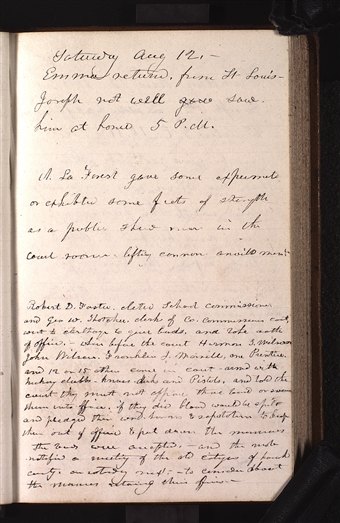 Saturday Aug 12.-
Emma return. from St Louis-
Joseph not well saw
him at home 5 P.M.
La Forest gave some experimt
or exhibited some feats of strength
as a public show man in the
court room. lifting cannon anvils men &c
Robert D. Foster elected School commissioner
and Geo w. Thatcher. clerk of Co. commissioners court
went to Carthage to give bonds, and take oath
of office. - when before the court Harmon T. Wilson
John Wilson. Franklin J. Morrill, Prentice.
and 12 or 15 others came in court - armed with
hickory clubs - knives dirks and Pistols, and told the
court they must not approve their bonds or swear
them into office. if they did blood would be spilt
and pledged their word honor & reputation to keep
them out of office & put down the mormons
the bonds were accepted. - and the mob
notified a meeting of the old citizens of
county. on saturday next. - to consider about
the mormons retaining their offices. -